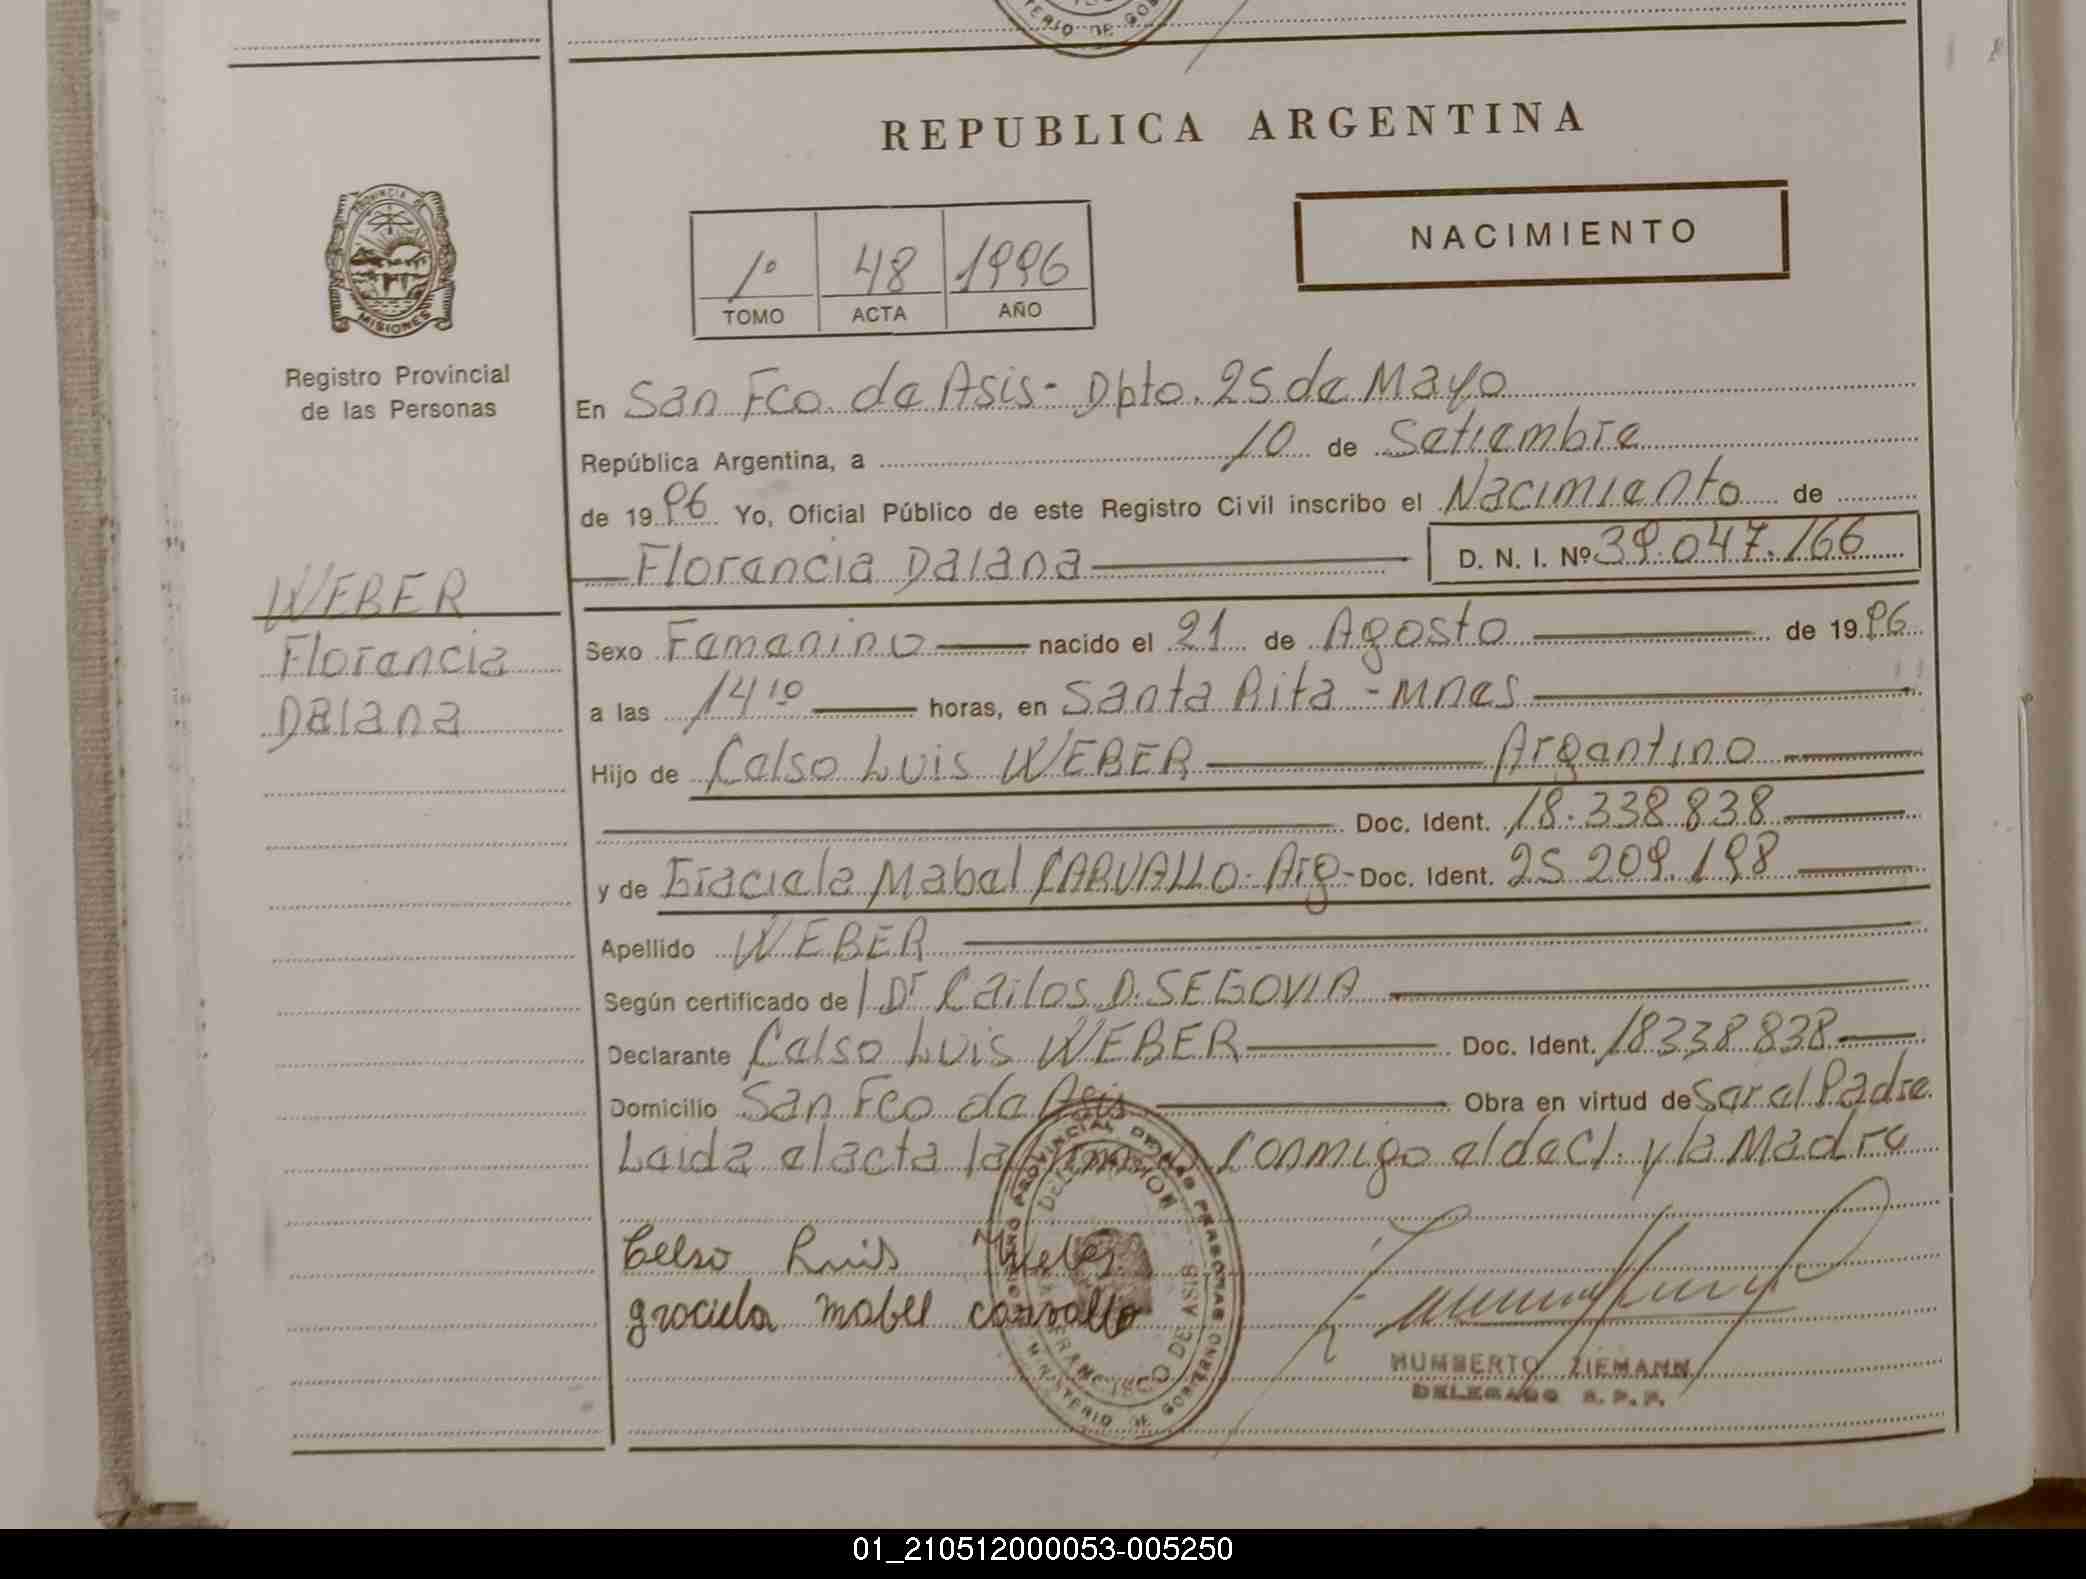 REPUBLICA ARGENTINA
NACIMIENTO
1º 48 1996
TOMO ACTA AÑO
PROVINCIA DE
MISIONES
Registro Provincial
de las Personas
En San Fco. de Asis - Dpto. 25 de Mayo
República Argentina, a 10 de Setiembre
de 1996 Yo, Oficial Público de este Registro Civil inscribo el Nacimiento de
Florencia Daiana D. N. I. Nº 39.047.166
WEBER
Florencia
Daiana
Sexo Femenino nacido el 21 de Agosto de 1996
a las 14 10 horas, en Santa Rita - Mnes
Hijo de Celso Luis WEBER Argentino
Doc. Ident. 18.338.838
y de Graciela Mabel CARVALLO - Arg - Doc. Ident. 25.209.198
Apellido WEBER
Según certificado de Dr Carlos D. SEGOVIA
Declarante Celso Luis WEBER Doc. Ident. 18.338.838
Domicilio San Fco de Asis Obra en virtud de Ser el Padre
Leida el acta la conmigo el decl. y la Madre
Celso Luis Weber
graciela mabel carvallo
PROVINCIAL DE LAS PERSONAS
DELEGACION
FRANCISCO DE ASIS
MINISTERIO DE GOBIERNO
HUMBERTO ZIEMANN
DELEGADO R. P. P.
01_210512000053-005250